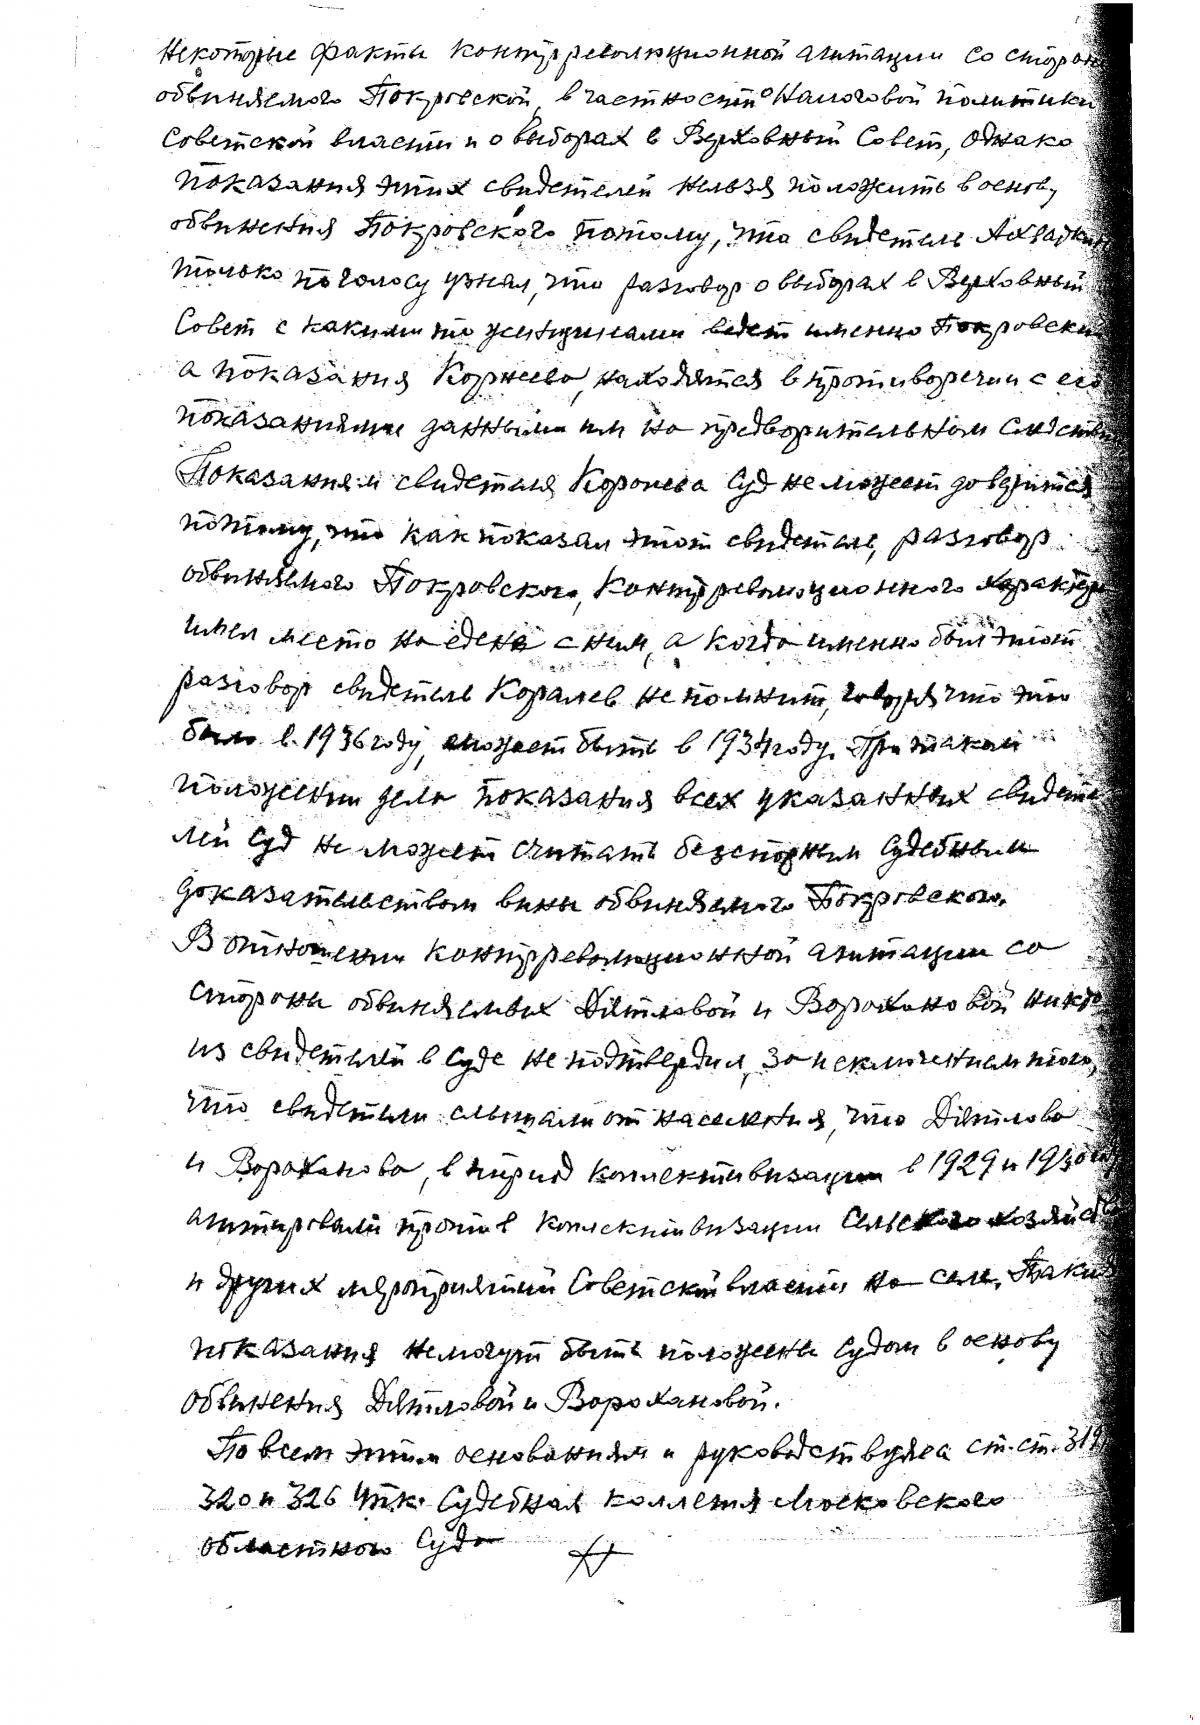 Некоторые факты контрреволюционной агитации со сторон
обвиняемого Покровской, в частности о налоговой политики
Советской власти и о выборах в Верховный Совет, однако
показания этих свидетелей нельзя положить в основу
обвинения Покровского потому, что свидетель
только по голосу узнал, что разговор о выборах в Верховный
Совет с какими то женщинами ведет именно Покровский
а показания Корнеева, находятся в противоречии с его
показаниями данными им на предворительном следствии
Показаниям свидетеля Королева Суд не может доверится
потому, что как показал этот свидетель, разговор
обвиняемого Покровского, контрреволюционного характера
имел место на едене с ним, а когда именно был этот
разговор свидетель Каралев не помнит, говоря что это
было в 1936 году, может быть в 1934 году. При таком
положении дела показания всех указанных свидете
лей Суд не может считать безспорным судебным
доказательством вины обвиняемого Покровского.
В отношении контрреволюционной агитации со
стороны обвиняемых Дятловой иВорохановой никто
из свидетелей в Суде не подтвердил, за исключением того,
что свидетели слышали от населения, что Дятлова
и Вороханова, в период коллективизации в 1929 и 1930
агитировали против коллективизации сельского хозяйства
и других мероприятий Советской власти на селе. Такие
показания не могут быть положены судом в основу
обвинения Дятловой и Ворохановой.
По всем этим основаниям и руководствуяся ст.ст. 319
320 и 326 УПК. Судебная коллегия Московского
областного Суда